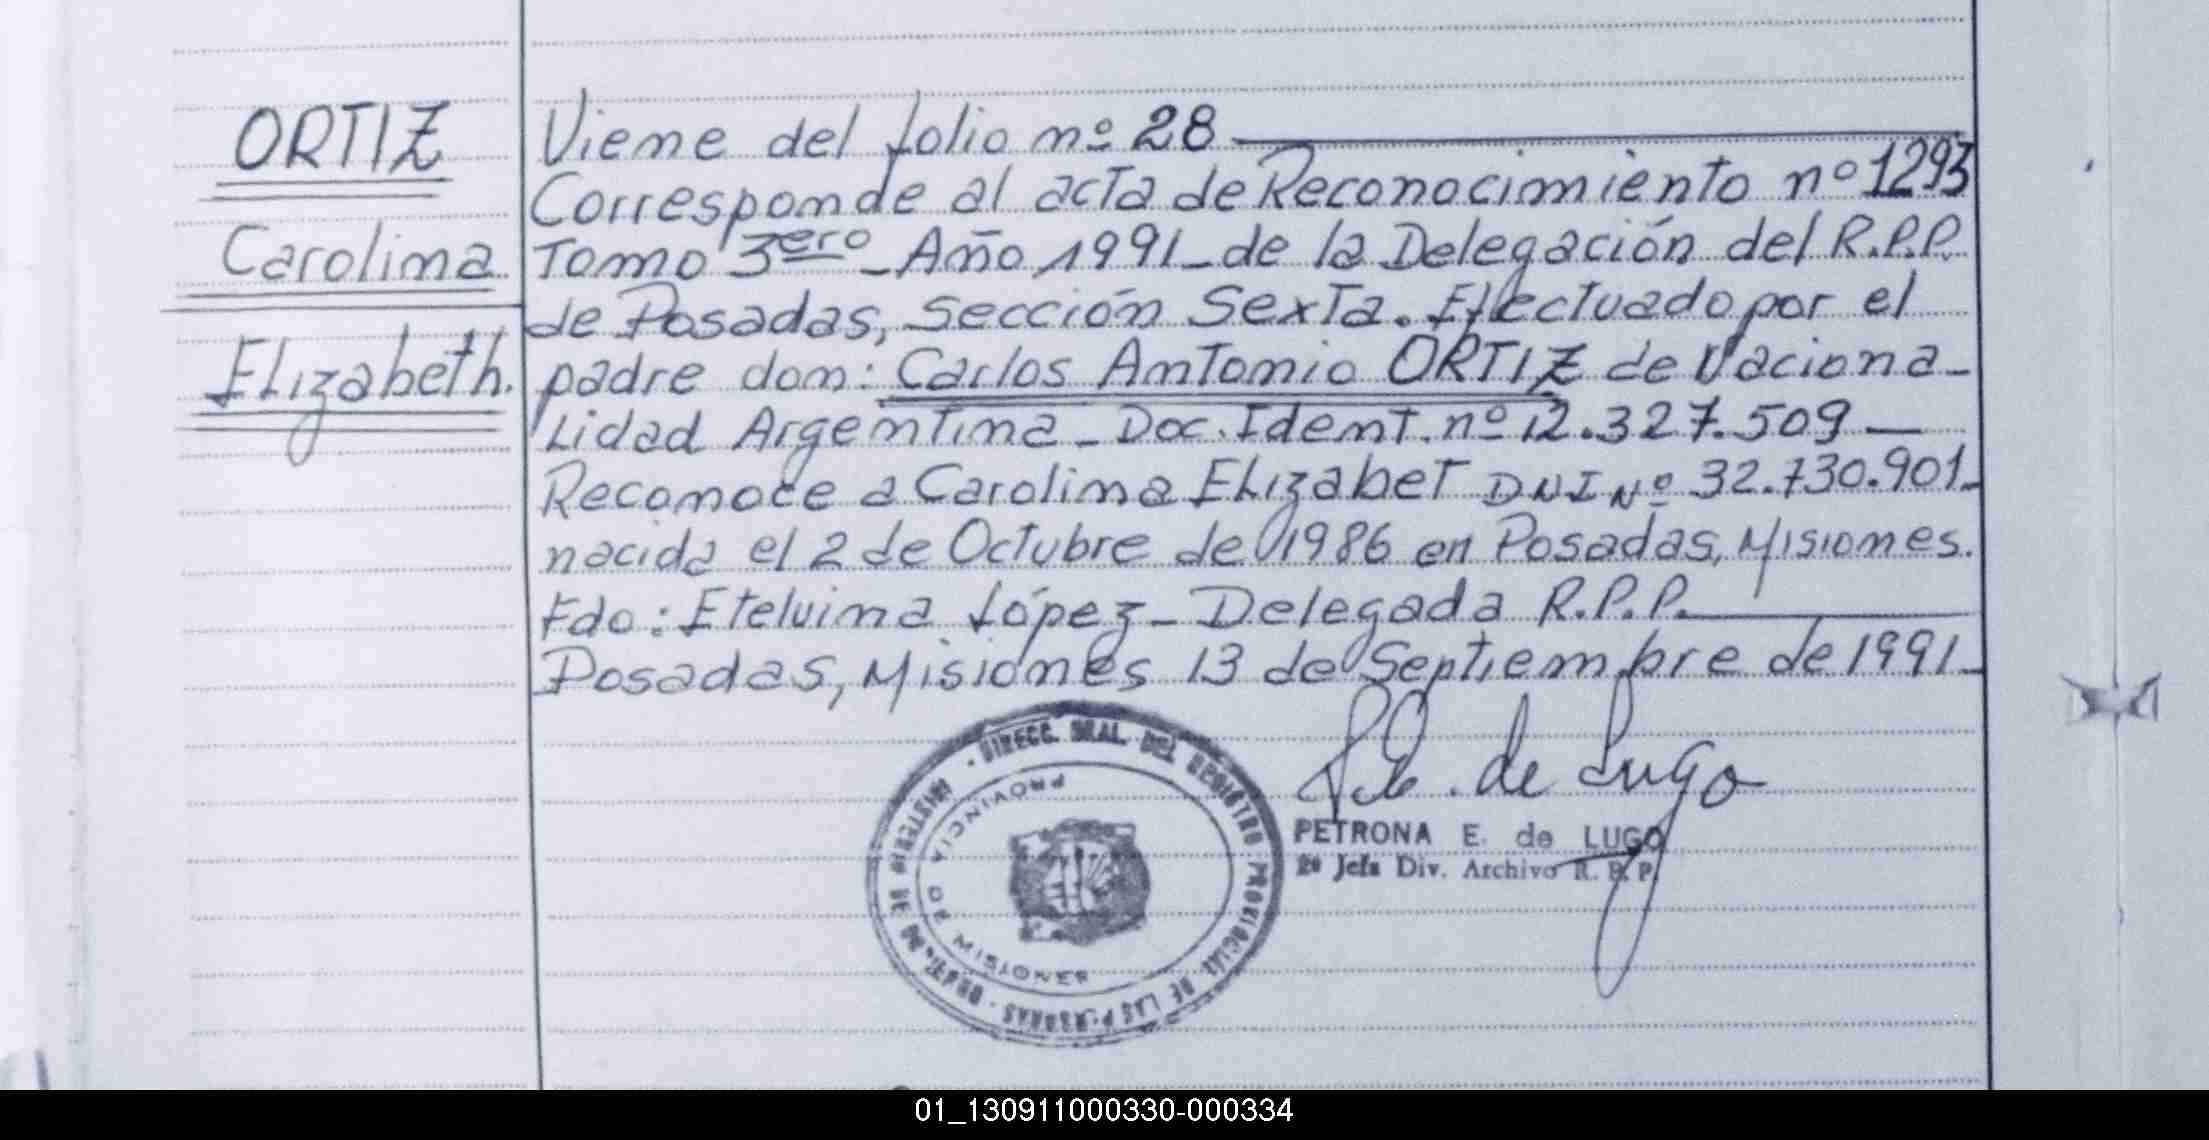 ORTIZ
Carolina
Elizabeth.
Viene del folio nº 28
Corresponde al acta de Reconocimiento nº 1293
Tomo 3ero - Año 1991 - de la Delegación del R.P.P.
de Posadas, Sección Sexta. Efectuado por el
padre don: Carlos Antonio ORTIZ de Naciona-
lidad Argentina - Doc. Ident. nº 12.327.509 -
Reconoce a Carolina Elizabet DNI Nº 32.730.901-
nacida el 2 de Octubre de 1986 en Posadas, Misiones.
Fdo: Etelvina López - Delegada R.P.P.
Posadas, Misiones 13 de Septiembre de 1991-
de Lugo
PETRONA E. de LUGO
2º Jefa Div. Archivo R.P.P.
DIRECC. GRAL. DEL REGISTRO PROVINCIAL DE LAS PERSONAS
PROVINCIA DE MISIONES
01_130911000330-000334